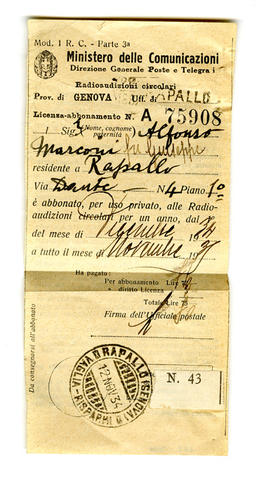 Mod. 1 R. C. - Parte 3a
Ministero delle Comunicazioni
Direzione Generale Poste e Telegra i
Radioaudizioni circolari
Prov. di GENOVA Uff. di RAPALLO
Licenza-abbonamento N. A 75908
Il Sig. (Nome, cognome paternità) Alfonso
Marconi fu Giuseppe
residente a Rapallo
Via Dante N. 4 Piano 1º
è abbonato, per uso privato, alle Radio-
audizioni circolari per un anno, dal
del mese di Dicembre 1934
a tutto il mese di Novembre 19
Ha pagato:
Per abbonamento Lire
» diritto Licenza
Totale Lire 75
Firma dell'Ufficiale postale
Da consegnarsi all'abbonato
RAPALLO (GENOVA)
12 NOV. 34
VAGLIA-RISPARMI
N. 43